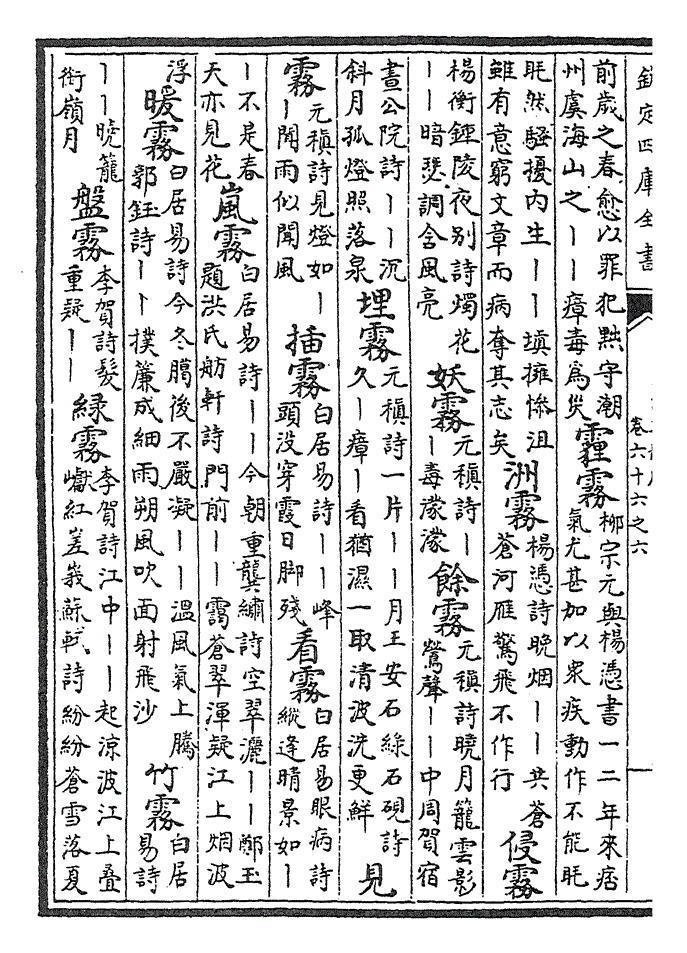 欽定四庫全書
卷六十六之六
前歲之春愈以罪犯黜守潮
州虞海山之丨丨瘴毒為災
霾霧
柳宗元與楊憑書一二年來痞
氣尤甚加以衆疾動作不能眊
眊然騷擾内生丨丨填擁慘沮
雖有意窮文章而病奪其志矣
洲霧
楊憑詩晚烟丨丨共蒼
蒼河雁驚飛不作行
侵霧
楊衡鍾陵夜别詩燭花
丨丨暗瑟調含風亮
妖霧
元稹詩丨
丨毒濛濛
餘霧
元稹詩曉月籠雲影
鶯聲丨丨中周賀宿
晝公院詩丨丨沉
斜月孤燈照落泉
埋霧
元稹詩一片丨丨月王安石綠石硯詩
久丨瘴丨看猶濕一取清波洗更鮮
見
霧
元稹詩見燈如丨
丨聞雨似聞風
插霧
白居易詩丨丨峰
頭没穿霞日脚殘
看霧
白居易眼病詩
縱逢晴景如丨
丨不是春
天亦見花
嵐霧
白居易詩丨丨今朝重龔繡詩空翠灑丨丨鄭玉
題洪氏舫軒詩門前丨丨靄蒼翠渾疑江上烟波
浮
暖霧
白居易詩今冬臈後不嚴凝丨丨温風氣上騰
郭鈺詩丨丨撲簾成細雨朔風吹面射飛沙
竹霧
白居
易詩
丨丨曉籠
銜嶺月
盤霧
李賀詩髮
重疑丨丨
緑霧
李賀詩江中丨丨起涼波江上疊
巘紅嵳峩蘇軾詩紛紛蒼雪落夏